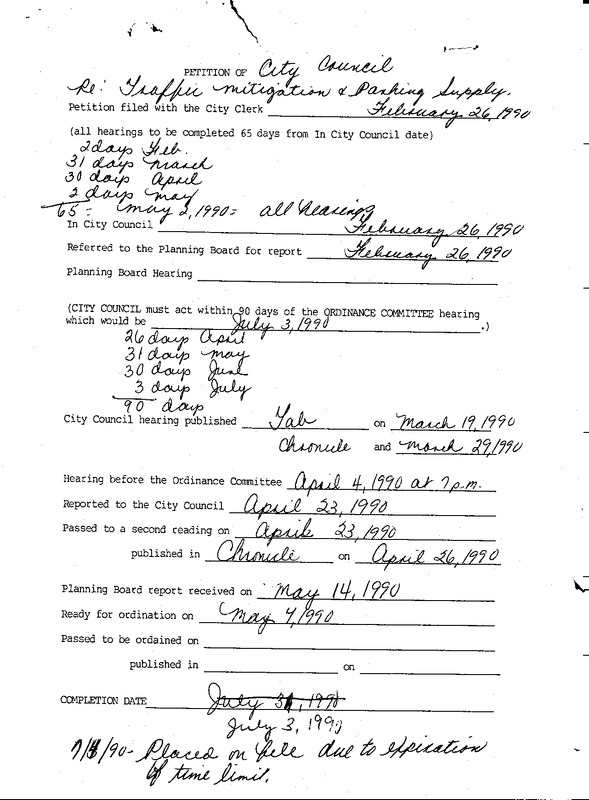 PETITION OF City Council
Re: Traffic Mitigation & Parking Supply.
Petition filed with the City Clerk February 26, 1990
(all hearings to be completed 65 days from In City Council date)
2 days Feb.
31 days March
30 days April
2 days May
65 = May 2, 1990 = all hearings
In City Council February 26, 1990
Referred to the Planning Board for report February 26, 1990
Planning Board Hearing
(CITY COUNCIL must act within 90 days of the ORDINANCE COMMITTEE hearing
which would be July 3, 1990.)
26 days April
31 days May
30 days June
3 days July
90 days
City Council hearing published Tab on March 19, 1990
Chronicle and March 29, 1990
Hearing before the Ordinance Committee April 4, 1990 at 7 p.m.
Reported to the City Council April 23, 1990
Passed to a second reading on April 23, 1990
published in Chronicle on April 26, 1990
Planning Board report received on May 14, 1990
Ready for ordination on May 7, 1990
Passed to be ordained on
published in on
COMPLETION DATE July 31, 1990
July 3, 1990
/90 - Placed on file due to expiration
of time limit.